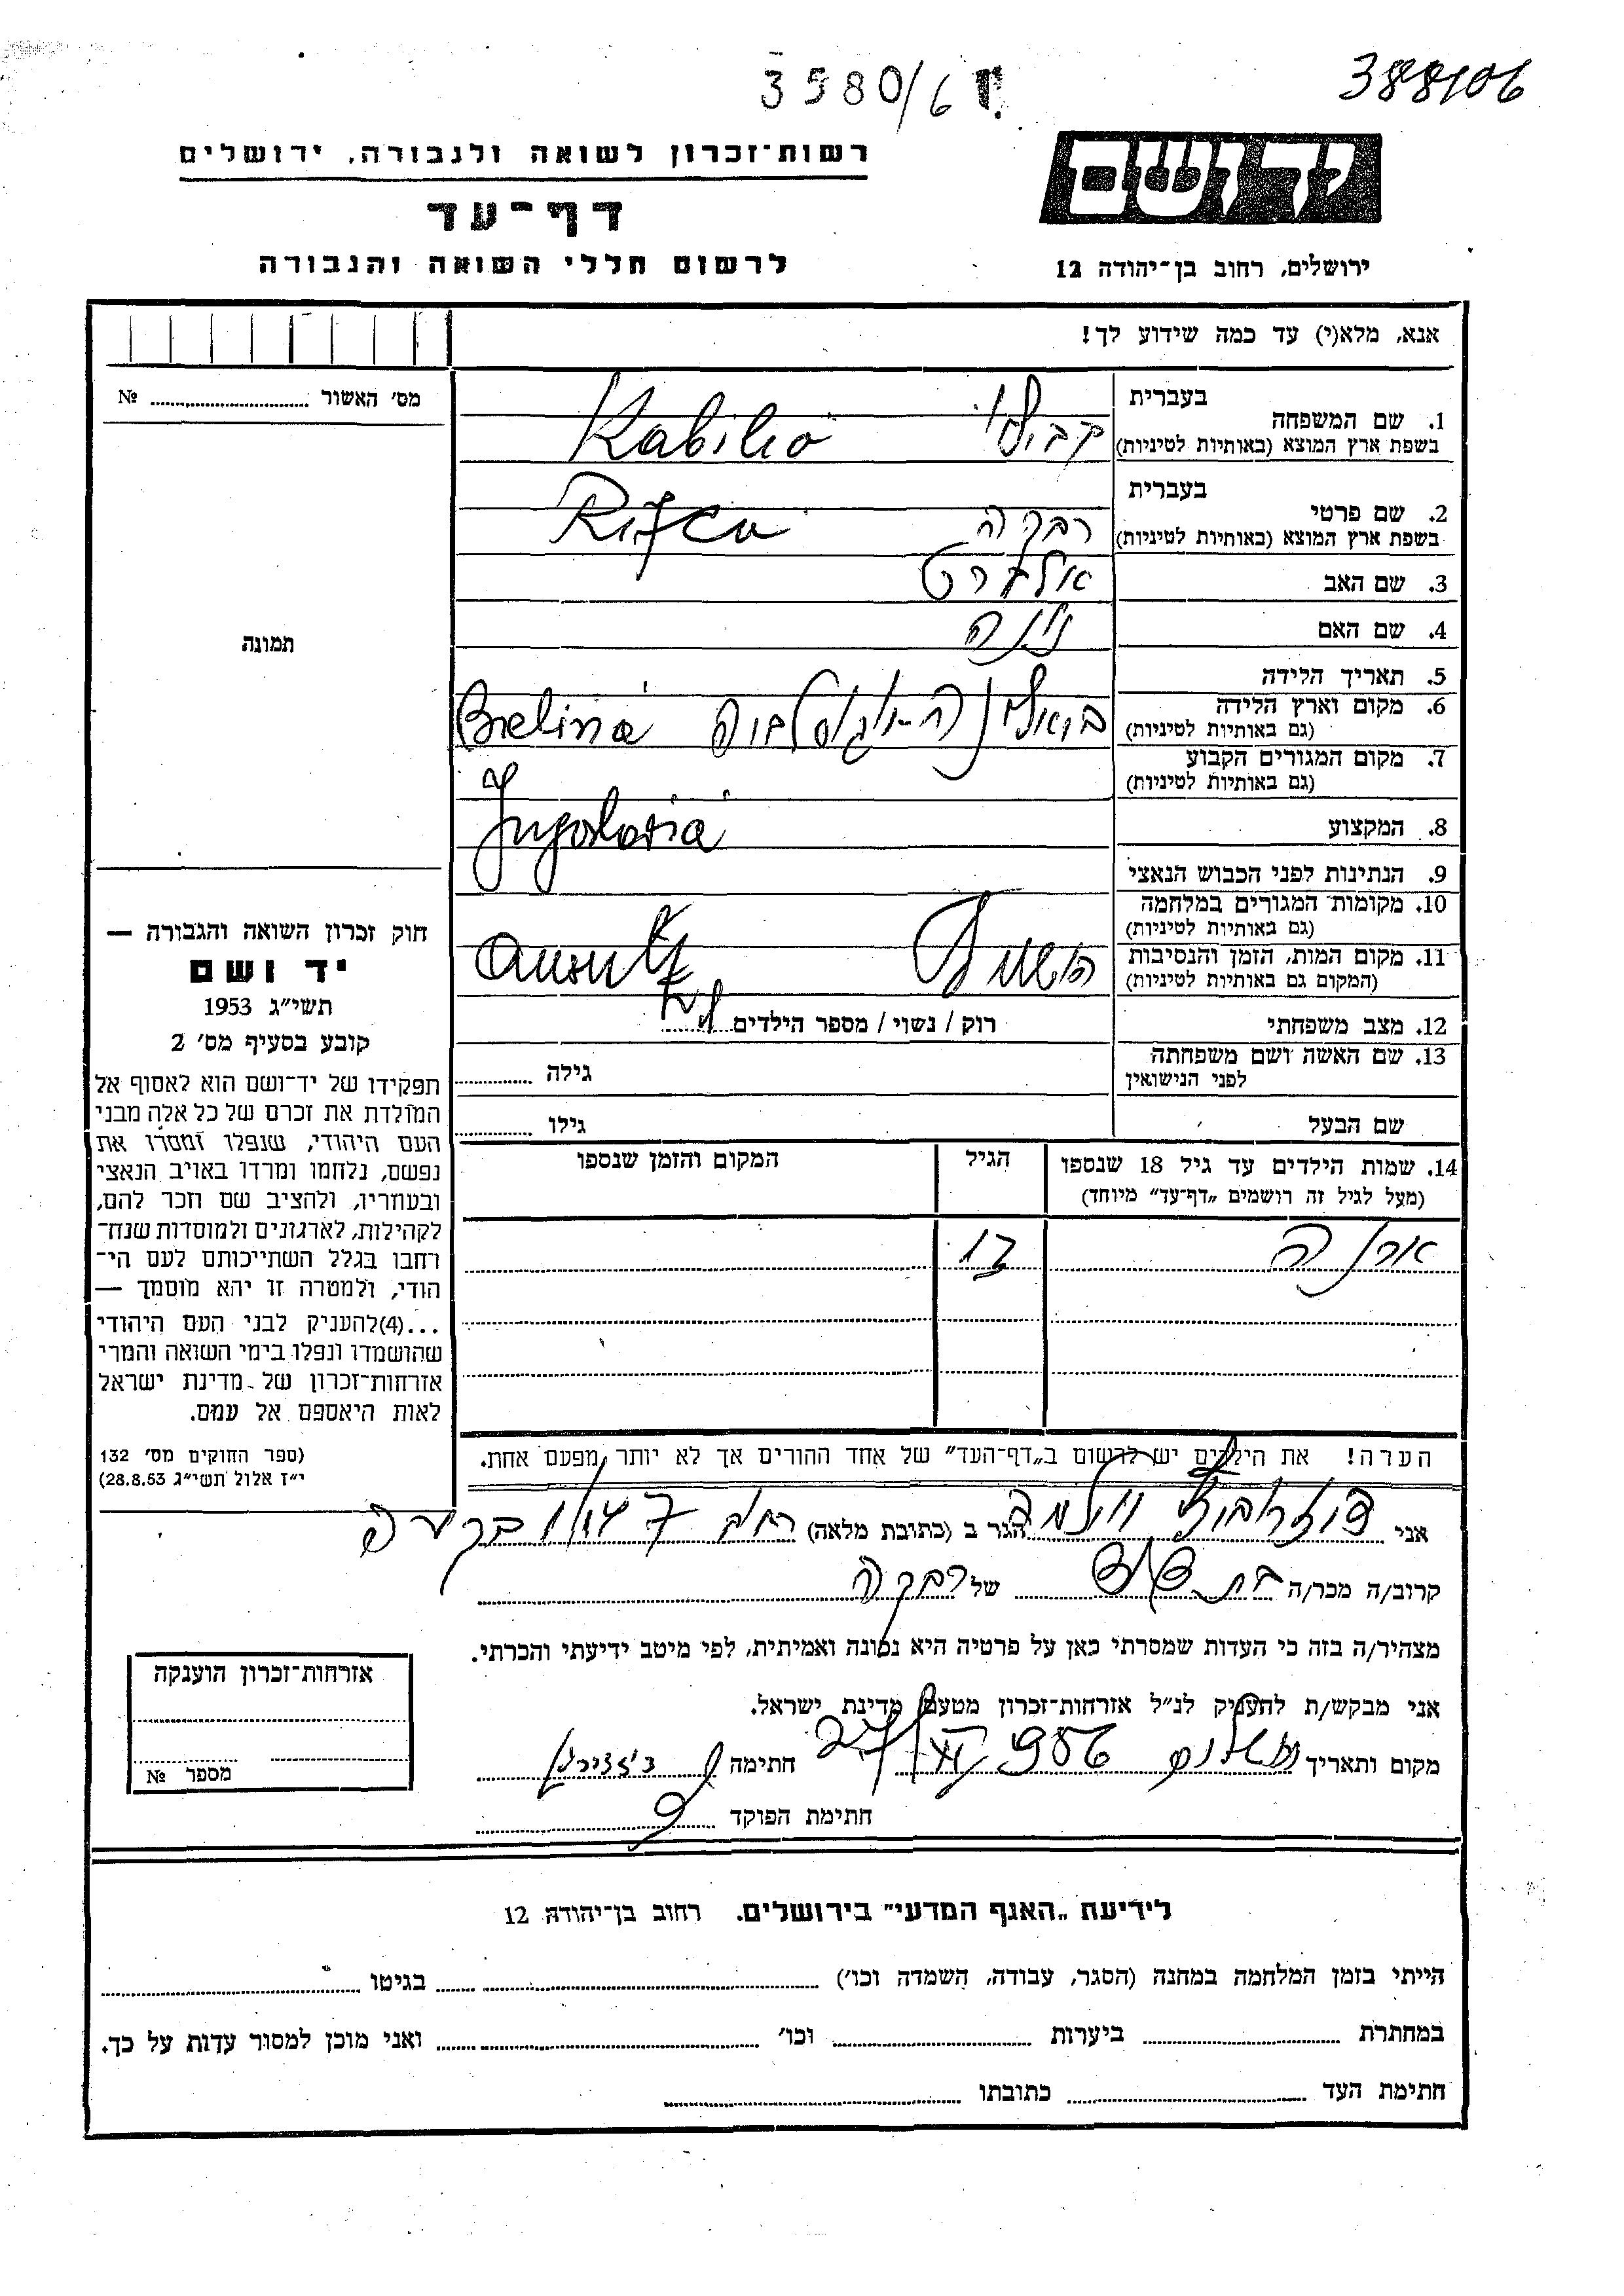 3580/67
388106
רשות־זכרון לשואה ולגבורה, ירושלים
יד ושם
דף־עד
לרשום חללי השואה והגבורה
ירושלים, רחוב בן־יהודה 12
אנא, מלא(י) עד כמה שידוע לך!
מס׳ האשור № ........
1. שם המשפחה בעברית קבוליו
בשפת ארץ המוצא (באותיות לטיניות) Kabilio
2. שם פרטי בעברית רבקה
בשפת ארץ המוצא (באותיות לטיניות) Rifca
3. שם האב אלברט
4. שם האם
תמונה
5. תאריך הלידה
6. מקום וארץ הלידה
(גם באותיות לטיניות) Bielina
7. מקום המגורים הקבוע
(גם באותיות לטיניות)
8. המקצוע
Jugoslavia
9. הנתינות לפני הכבוש הנאצי
10. מקומות המגורים במלחמה
(גם באותיות לטיניות)
11. מקום המות, הזמן והנסיבות
(המקום גם באותיות לטיניות)
12. מצב משפחתי רוק / נשוי / מספר הילדים
13. שם האשה ושם משפחתה
לפני הנישואין גילה ........
שם הבעל גילו ........
14. שמות הילדים עד גיל 18 שנספו הגיל המקום והזמן שנספו
(מעל לגיל זה רושמים „דף־עד״ מיוחד)
חוק זכרון השואה והגבורה —
יד ושם
תשי״ג 1953
קובע בסעיף מס׳ 2
תפקידו של יד־ושם הוא לאסוף אל
המולדת את זכרם של כל אלה מבני
העם היהודי, שנפלו ומסרו את
נפשם, נלחמו ומרדו באויב הנאצי
ובעוזריו, ולהציב שם וזכר להם,
לקהילות, לארגונים ולמוסדות שנח־
רבו בגלל השתייכותם לעם הי־
הודי, ולמטרה זו יהא מוסמך —
...(4)להעניק לבני העם היהודי
שהושמדו ונפלו בימי השואה והמרי
אזרחות־זכרון של מדינת ישראל
לאות היאספם אל עמם.
(ספר החוקים מס׳ 132
י״ז אלול תשי״ג 28.8.53)
הערה! את הילדים יש לרשום ב„דף־העד״ של אחד ההורים אך לא יותר מפעם אחת.
אני הגר ב (כתובת מלאה)
קרוב/ה מכר/ה בת דוד של רבקה
מצהיר/ה בזה כי העדות שמסרתי כאן על פרטיה היא נכונה ואמיתית, לפי מיטב ידיעתי והכרתי.
אני מבקש/ת להעניק לנ״ל אזרחות־זכרון מטעם מדינת ישראל.
מקום ותאריך חתימה
חתימת הפוקד
אזרחות־זכרון הוענקה
מספר №
לידיעת „האגף המדעי״ בירושלים. רחוב בן־יהודה 12
הייתי בזמן המלחמה במחנה (הסגר, עבודה, השמדה וכו׳) ........ בגיטו ........
במחתרת ........ ביערות ........ וכו׳ ........ ואני מוכן למסור עדות על כך.
חתימת העד ........ כתובתו ........